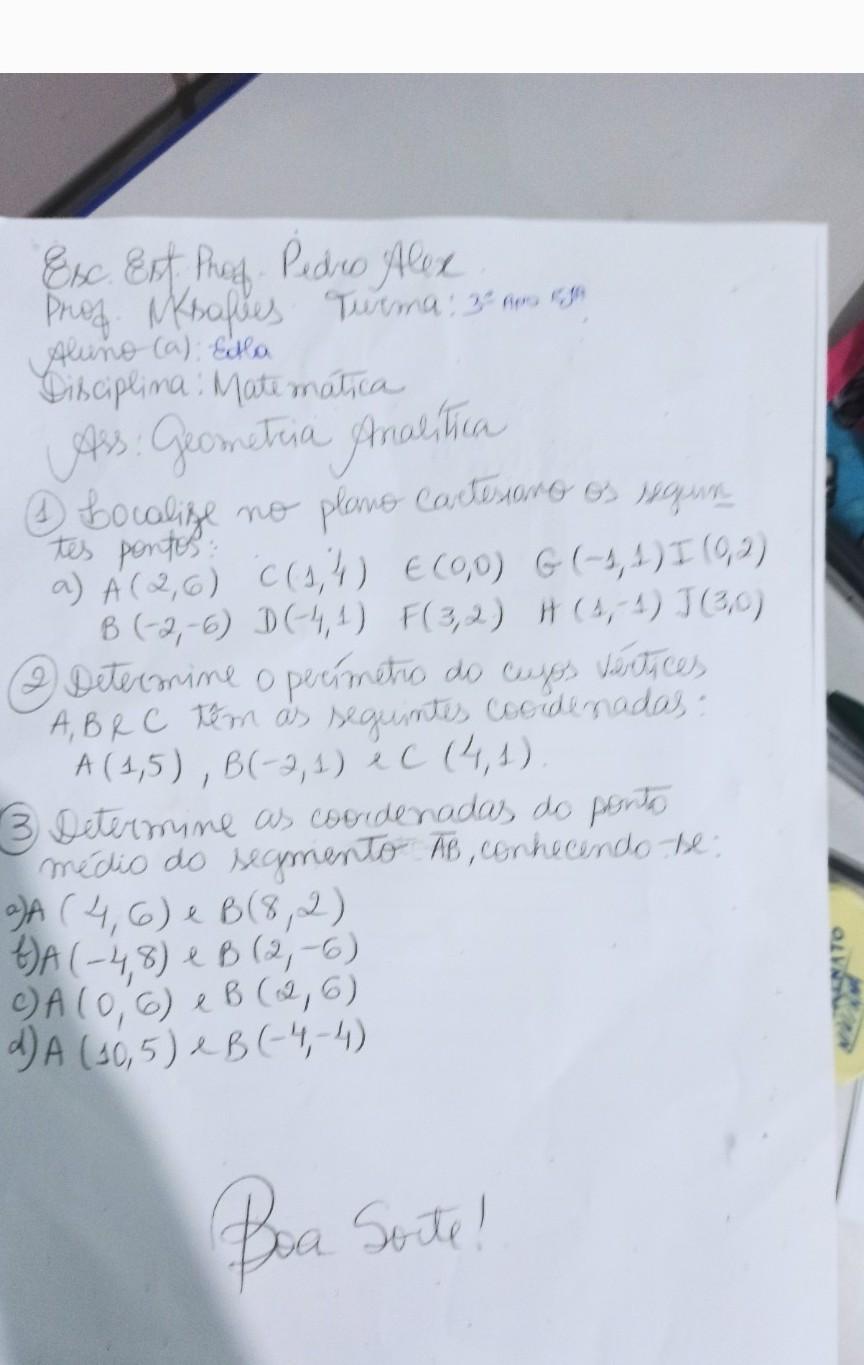 Esc. Est. Prof. Pedro Alex
Prof. Turma: 3º Ano EJA
Aluno(a): Edla
Disciplina: Matemática
Ass: Geometria Analítica
① Localize no plano cartesiano os seguin
tes pontos:
a) A(2,6) C(1,4) E(0,0) G(-1,1) I(0,2)
B(-2,-6) D(-4,1) F(3,2) H(1,-1) J(3,0)
② Determine o perímetro do cujos vértices
A, B e C têm as seguintes coordenadas:
A(1,5), B(-2,1) e C (4,1).
③ Determine as coordenadas do ponto
médio do segmento AB, conhecendo-se:
a) A (4,6) e B(8,2)
b) A(-4,8) e B(2,-6)
c) A(0,6) e B(2,6)
d) A (10,5) e B(-4,-4)
Boa Sorte!